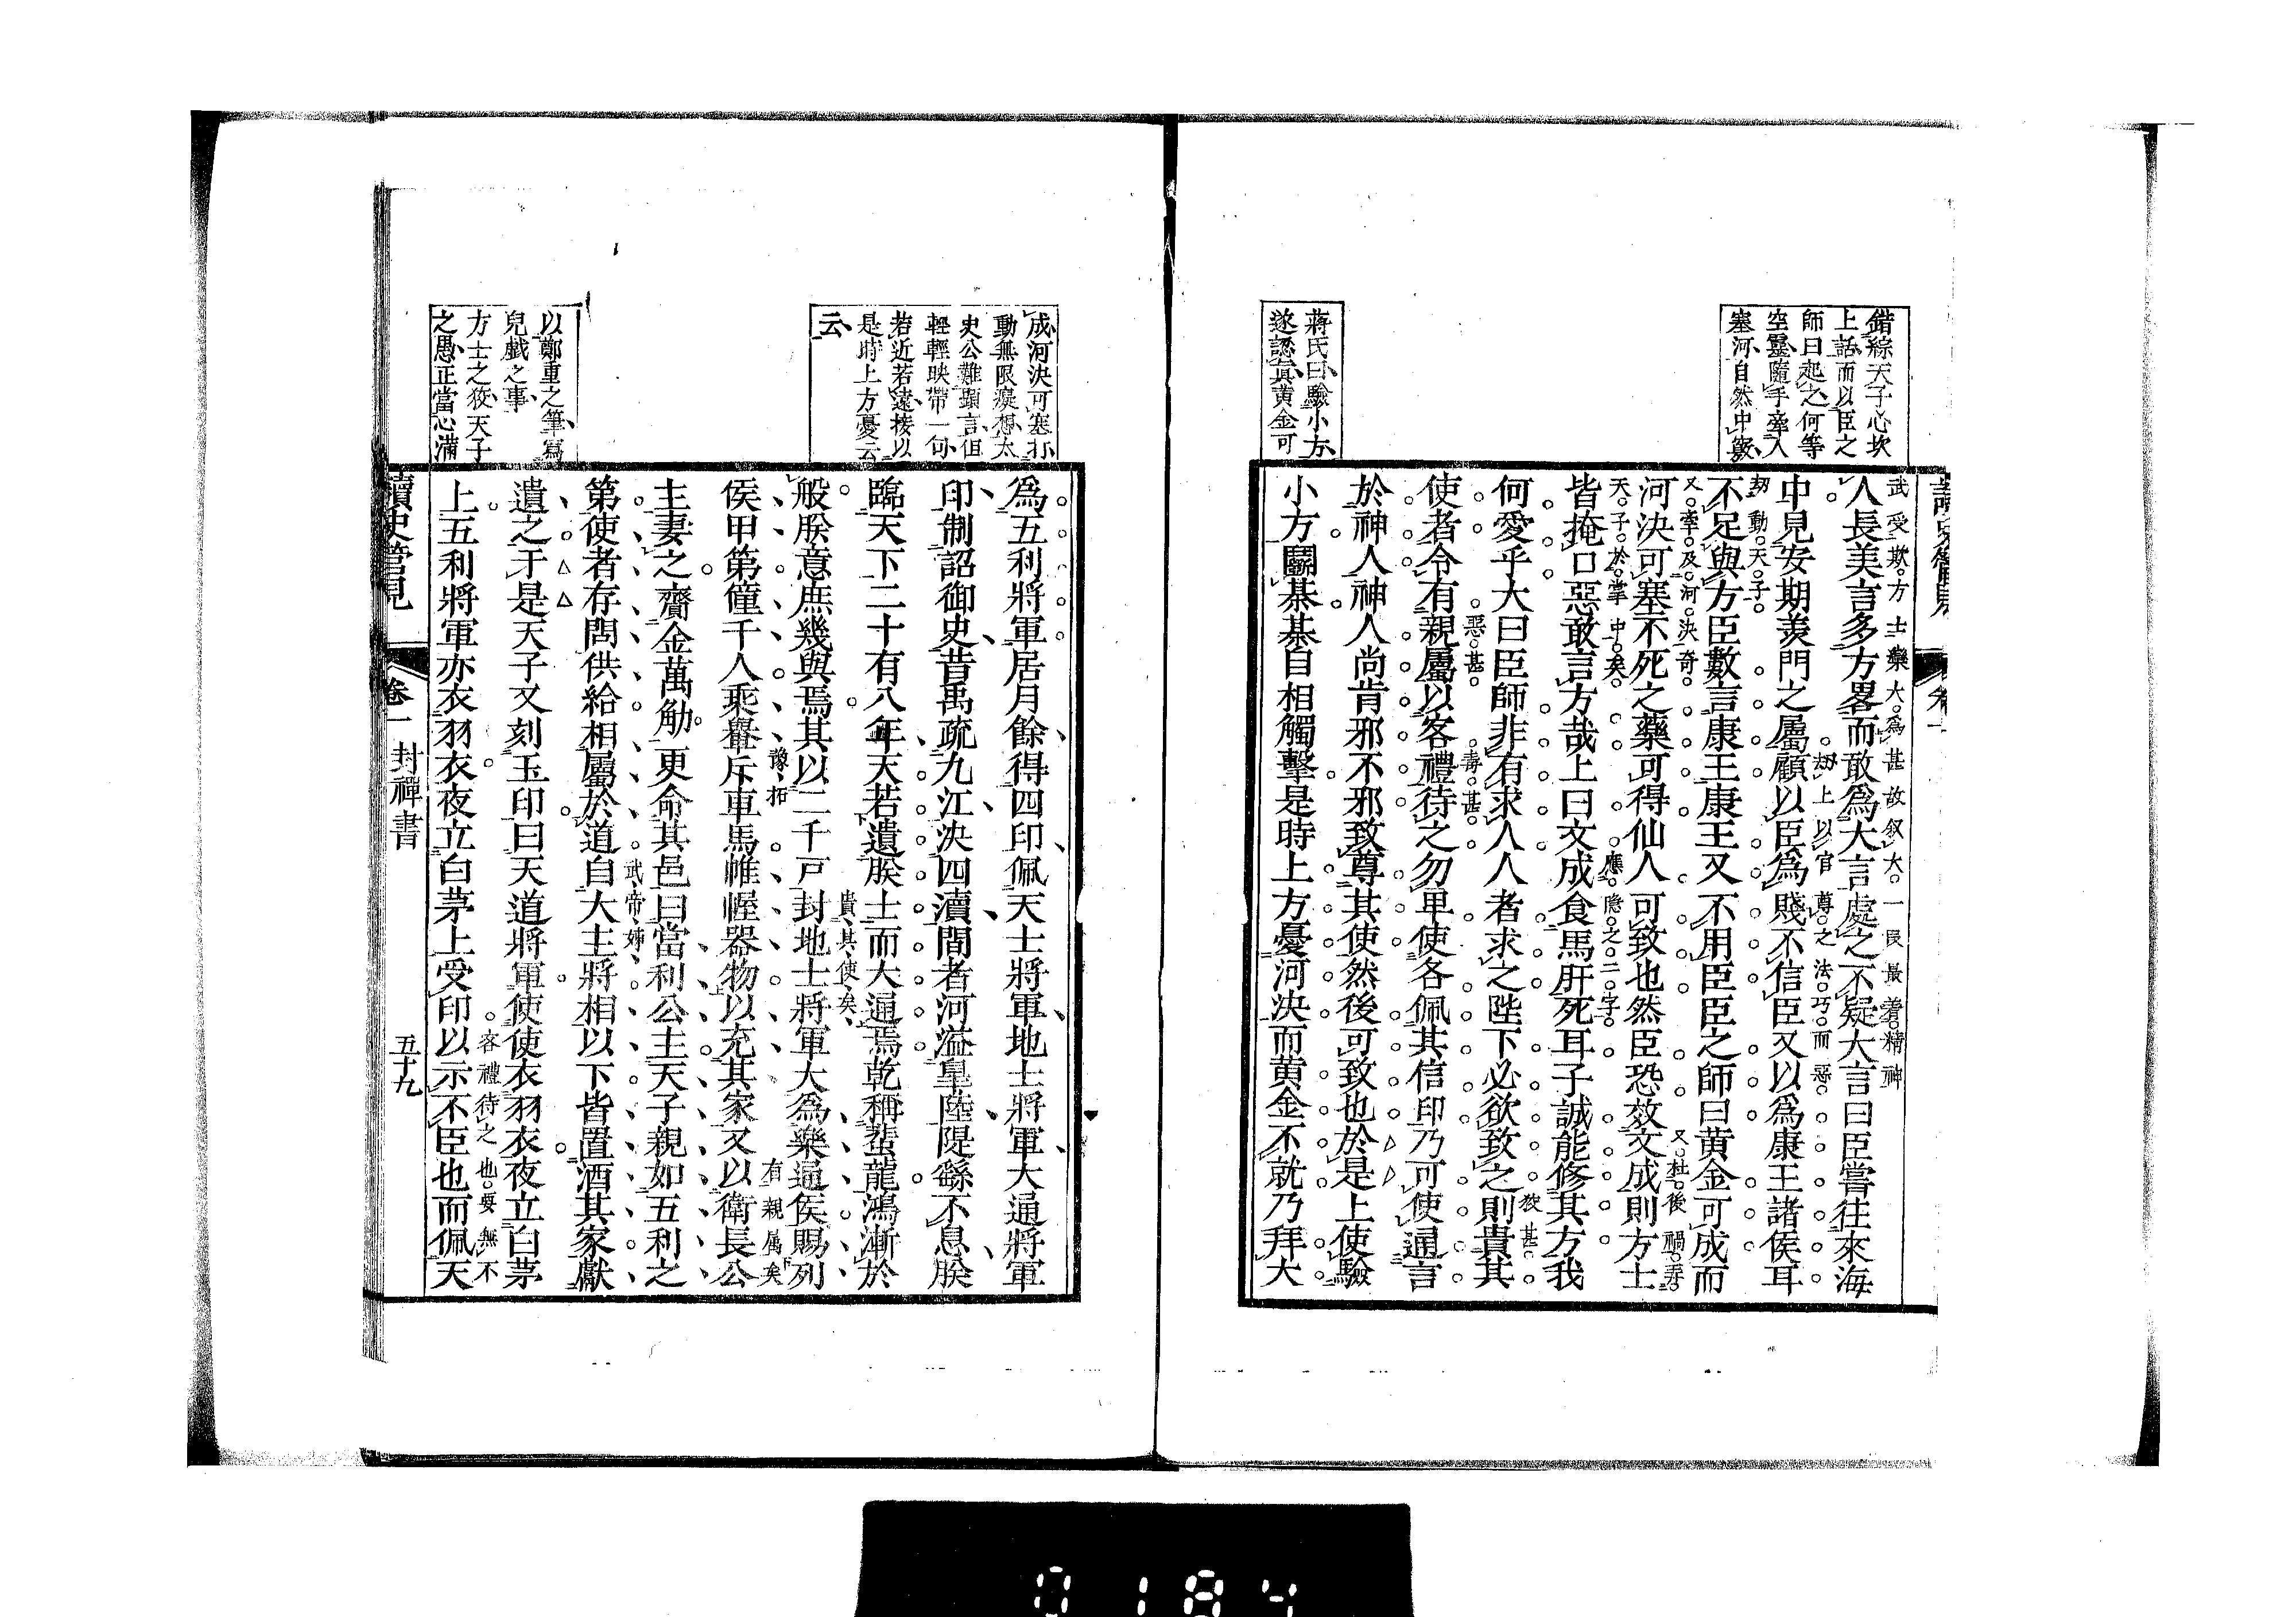 錯綜天子心坎
上話而以臣之
師曰起之何等
空靈隨手牽入
塞河自然中竅
蔣氏曰驗小方
遂認眞黄金可
武受欺方士欒大爲甚故叙大一段最着精神
人長美言多方畧而敢爲大言處之不疑大言曰臣嘗往來海
劫上以官尊之法巧而惡
中見安期羡門之屬顧以臣爲賤不信臣又以爲康王諸侯耳
劫動天子
不足與方臣數言康王康王又不用臣臣之師曰黄金可成而
又牽及河決奇
又杜後禍秀
河決可塞不死之藥可得仙人可致也然臣恐效文成則方士
天子於掌中矣
應隐之二字
皆掩口惡敢言方哉上曰文成食馬肝死耳子誠能修其方我
狡甚
何愛乎大曰臣師非有求人人者求之陛下必欲致之則貴其
惡甚
毒甚
使者令有親屬以客禮待之勿卑使各佩其信印乃可使通言
於神人神人尚肯邪不邪致尊其使然後可致也於是上使驗
小方鬭棊棊自相觸擊是時上方憂河決而黄金不就乃拜大
成河決可塞打
動無限癡想太
史公難顯言但
輕輕映帶一句
若近若遠接以
是時上方憂云
云
以鄭重之筆寫
兒戯之事
方士之狡天子
之愚正當心滿
爲五利將軍居月餘得四印佩天士將軍地士將軍大通將軍
印制詔御史昔禹疏九江決四瀆間者河溢皐陸隄繇不息朕
臨天下二十有八年天若遺朕士而大通焉乾稱蜚龍鴻漸於
貴其使矣
般朕意庶幾與焉其以二千戸封地士將軍大爲欒通侯賜列
豫拓
有親屬矣
侯甲第僮千人乘轝斥車馬帷幄器物以充其家又以衛長公
主妻之齎金萬觔更命其邑曰當利公主天子親如五利之
武帝姊
第使者存問供給相屬於道自大主將相以下皆置酒其家獻
遺之于是天子又刻玉印曰天道將軍使使衣羽衣夜立白茅
客禮待之也要無不
上五利將軍亦衣羽衣夜立白茅上受印以示不臣也而佩天
讀史管見
卷一
封禪書
五十九
0184